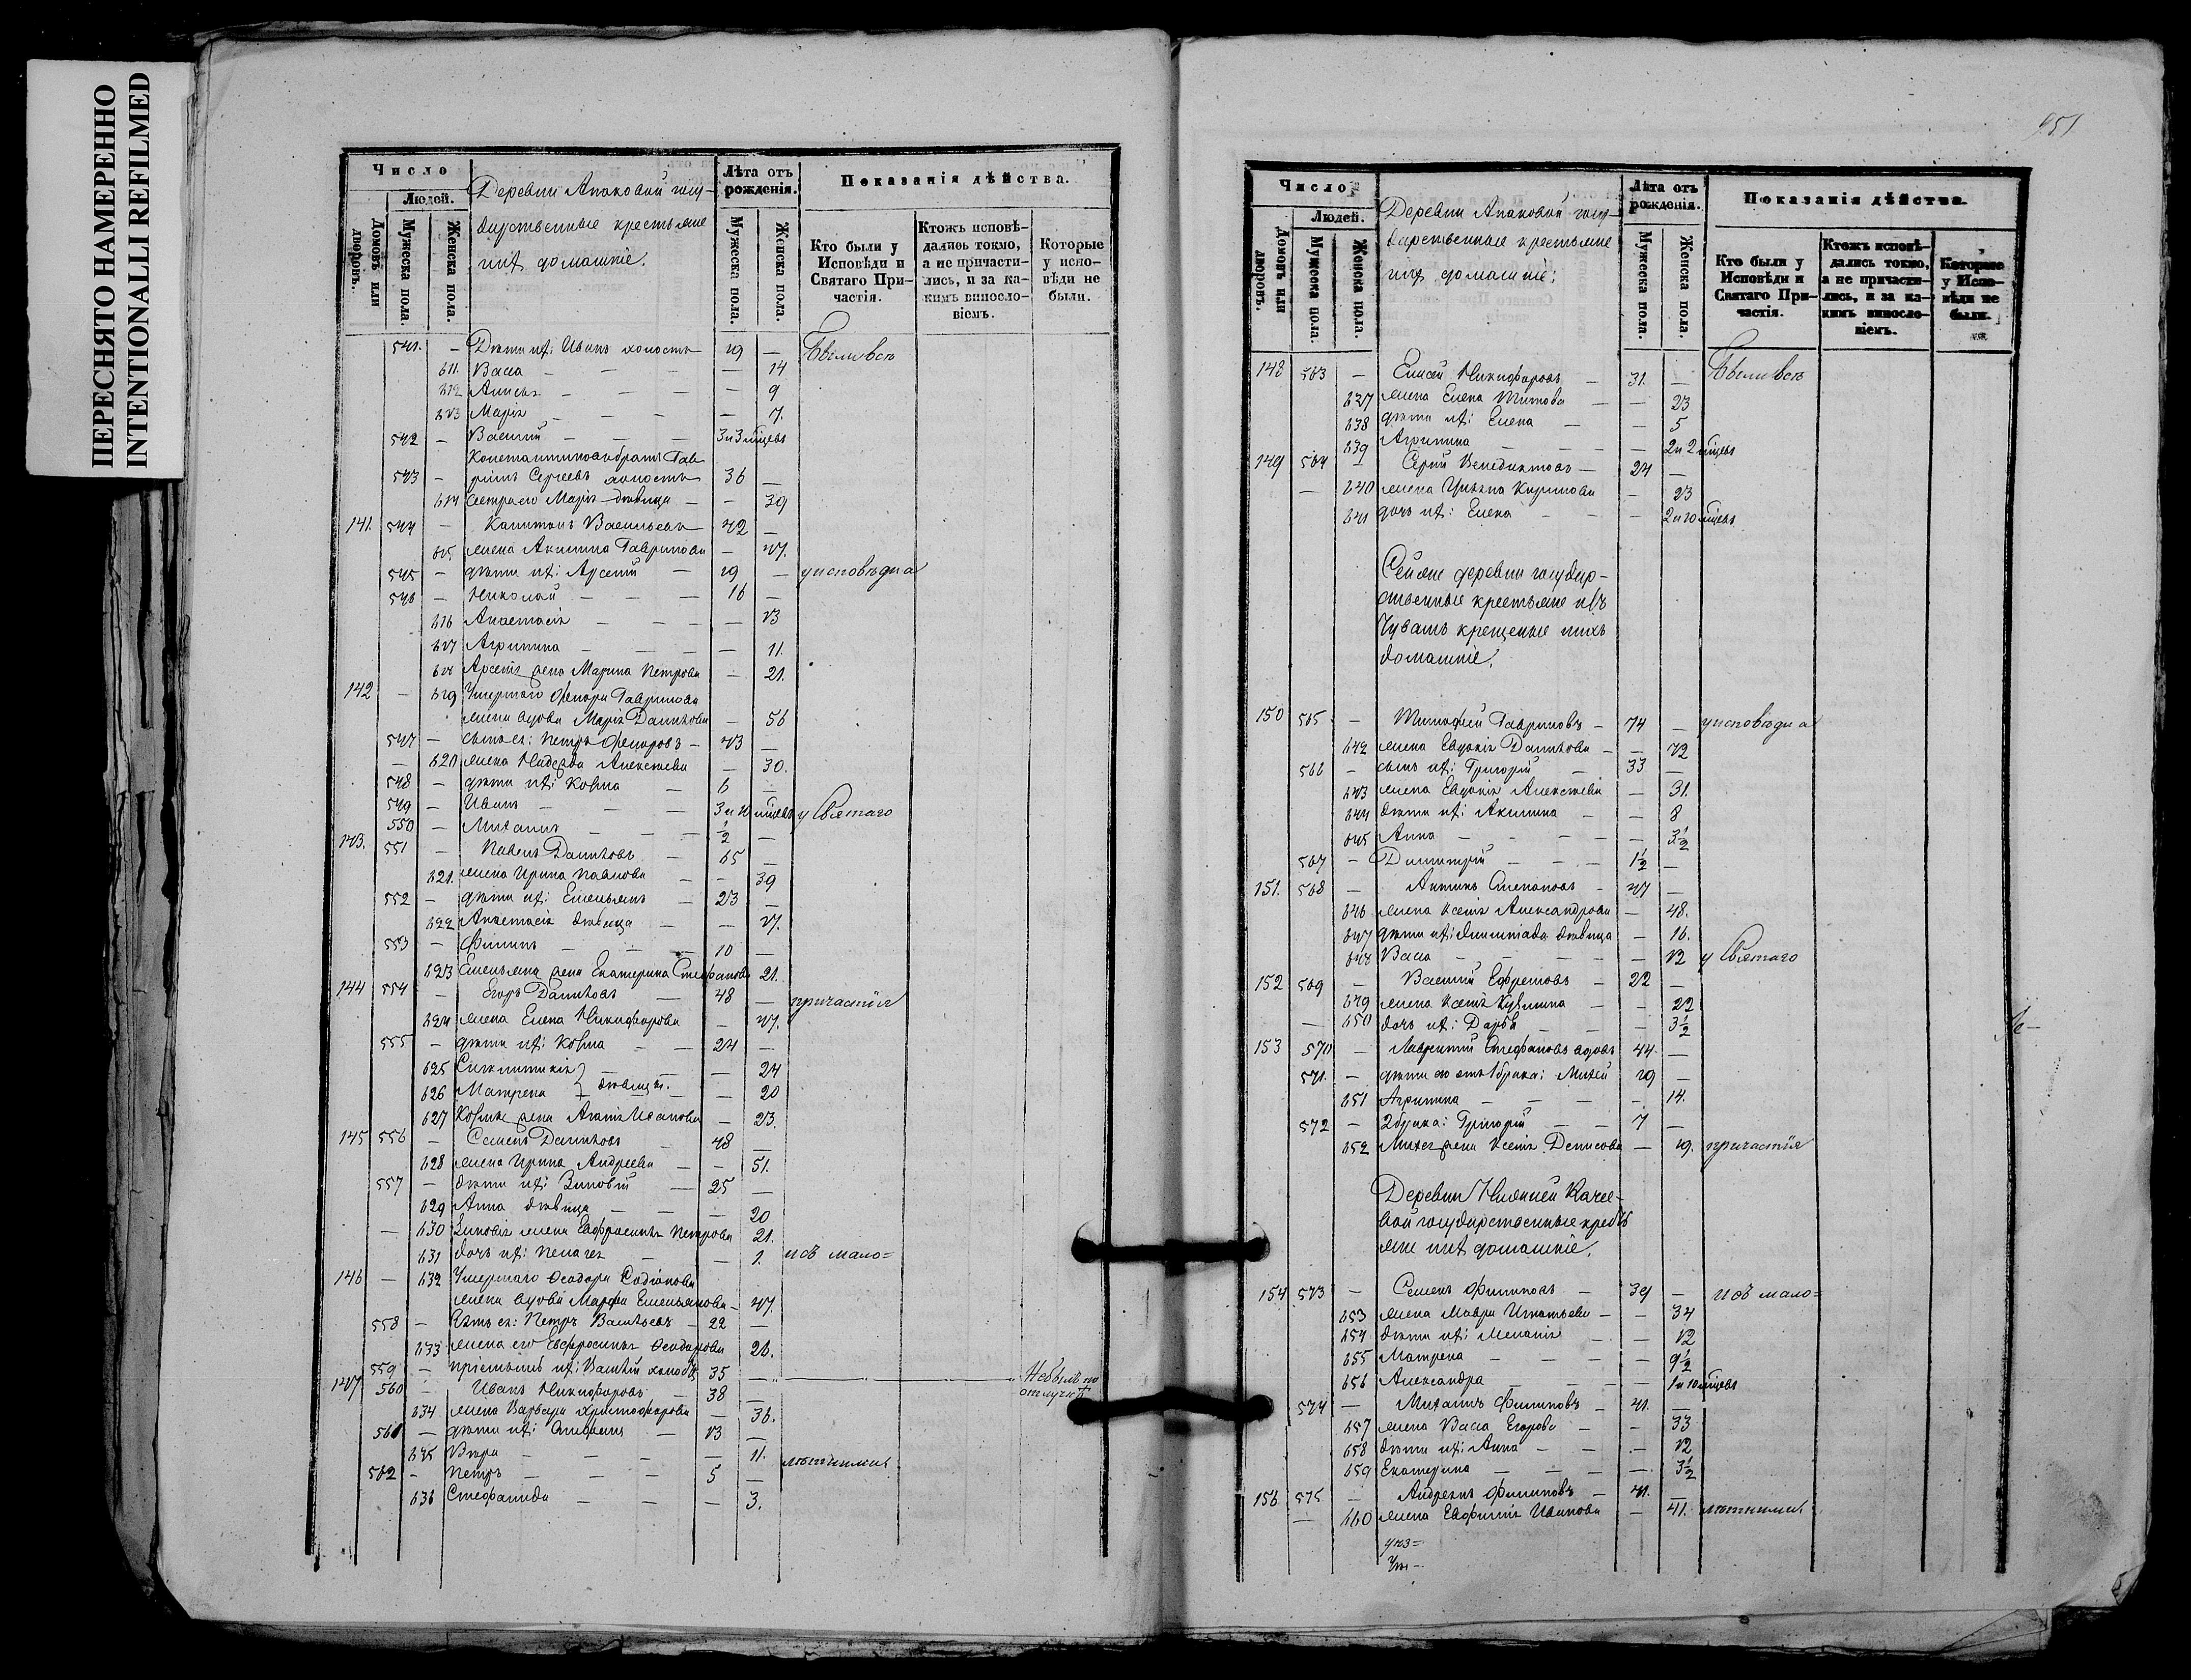 ПЕРЕСНЯТО НАМЕРЕННО
INTENTIONALLI REFILMED
Число
Людей.
Домовъ или дворовъ.
Мужеска пола.
Женска пола.
Деревни Апаковой госу-
дарственные крестьяне
и ихъ домашніе.
Лѣта отъ рожденія.
Мужеска пола.
Женска пола.
Показанія дѣйства.
Кто были у Исповѣди и Святаго При-частія.
Ктожъ исповѣ-дались токмо, а не причасти-лись, и за ка-кимъ винословіемъ.
Которые у испо-вѣди не были.
541. — Дѣти ихъ: Иванъ холостъ 19 — Были всѣ
611. Васса — — — — 14
612 Анисья — — — — 9
613 Марія — — — — 7.
542 — Василій — — — 3 и 3 мѣсцевъ
Константиновъ братъ Гав-
543 — рилъ Сергеевъ холостъ 36 —
614 сестра его Марія дѣвица — — 39
141. 544 — Капитонъ Васильевъ 42 —
615. жена Акилина Гаврилова — 47.
545 — дѣти ихъ: Арсеній — 19 — у исповѣди и
546 — Николай — — — 16 —
616 Анастасія — — — — 13
617 Агрипина — — — — 11.
618 Арсенія жена Марина Петрова — 21.
142 — 619 Умершаго Ѳедора Гаврилова
жена вдова Марія Данилова — 56
547 — сынъ ея: Петръ Ѳедоровъ — 43 —
— 620 жена Надежда Алексѣева — 30.
548 — дѣти ихъ: Козма — 6 —
549 — Иванъ — — 3 и 10 мѣсцевъ у Святаго
550 — Михаилъ — — — ½ —
143. 551 — Павелъ Даниловъ — 65 —
621. жена Ирина Павлова — — 39
552 — дѣти ихъ: Емельянъ — 23 —
622 Анастасія дѣвица — — 17.
553 — Филипъ — — — 10 —
623 Емельяна жена Екатерина Стефанова 21.
144 554 — Егоръ Даниловъ — 48 — причастія
624 жена Елена Никифорова — 47.
555 — дѣти ихъ: Козма — — 24 —
625 Синклитикія } дѣвицы. — — 24
626 Матрена — — 20
627 Козмы жена Агапія Иванова — 23.
145 556 — Семенъ Даниловъ — 48 —
628 жена Ирина Андреева — — 51.
557 — дѣти ихъ: Зиновій — 25 —
629 Анна дѣвица — — — 20
— 630 Зиновія жена Евфросинья Петрова 21.
631 дочь ихъ: Пелагея — — 1. и съ мало=
146 — 632 Умершаго Ѳеодора
жена вдова Марѳа Емельянова — 47.
558 — Зять ея: Петръ Васильевъ — 22 —
633 жена его Евфросинья Ѳеодорова 26.
559 — пріемышъ ихъ: Василій холостъ 35 — Небылъ по
147 560 — Иванъ Никифоровъ — 38 — отлучкѣ
634 жена Варвара Христофорова — 36.
561 — дѣти ихъ: Стефанъ — 13 —
635 Вѣра — — — — 11.
562 — Петръ — — — 5 — лѣтними.
636 Стефанида — — — 3.
951
Число
Людей.
Домовъ или дворовъ.
Мужеска пола.
Женска пола.
Деревни Апаковой госу-
дарственные крестьяне
и ихъ домашніе:
Лѣта отъ рожденія.
Мужеска пола.
Женска пола.
Показанія дѣйства.
Кто были у Исповѣди и Святаго При-частія.
Ктожъ исповѣ-дались токмо, а не причасти-лись, и за ка-кимъ винословіемъ.
Которые у Испо-вѣди не были.
148 563 — Елисей Никифоровъ — 31. — Были всѣ
637 жена Елена Титова — — 23
638 дѣти ихъ: Елена — — 5
639 Агрипина — — — — 2 и 2 мѣсцевъ
149 564 — Сергій Венедиктовъ — 24 —
— 640 жена Ульяна Кирилова — 23
641 дочь ихъ: Елена — — — 2 и 10 мѣсцевъ
деревни государ-
ственные крестьяне изъ
Чувашъ крещеные и ихъ
домашніе.
150 565 — Тимофей Гавриловъ — 74 — у исповѣди и
642 жена Евдокія Данилова — — 72
566 — сынъ ихъ: Григорій — 33 —
643 жена Евдокія Алексѣева — 31.
644 дѣти ихъ: Акилина — — 8
645 Анна — — — — — 3½
567 — Димитрій — — — 1½ —
151. 568 — Антипъ Степановъ — 47 —
646 жена Ксенія Александрова — 48.
647 дѣти ихъ: Олимпіада дѣвица — 16.
648 Васса — — — — — 12 у Святаго
152 569 — Василій Ефремовъ — 22 —
649 жена Ксенія Кузмина — — 22
— 650 дочь ихъ: Дарья — — — 3½
153 570 — Лаврентій Стефановъ вдовъ 44 —
571. — дѣти его отъ 1 брака: Михей 19 —
651 Агрипина — — — — 14.
572 — 2 брака: Григорій — — 7 —
652 Михея жена Ксенія Денисова — 19. причастія
Деревни Нижней Каче-
вой государственные кресть
яне и ихъ домашніе.
154 573 — Семенъ Филиповъ — 39 — и съ мало=
653 жена Мавра Игнатьева — — 34
654 дѣти ихъ: Меланія — — 12
655 Матрена — — — — 9½
656 Александра — — — 1 и 10 мѣсцевъ
574 — Михаилъ Филиповъ — 41. —
657 жена Васса Егорова — — 33
658 дѣти ихъ: Анна — — — 12
659 Екатерина — — — — 3½
156 575 — Андреянъ Филиповъ — 41. —
— 660 жена Евфимія Иванова — 41. лѣтними.